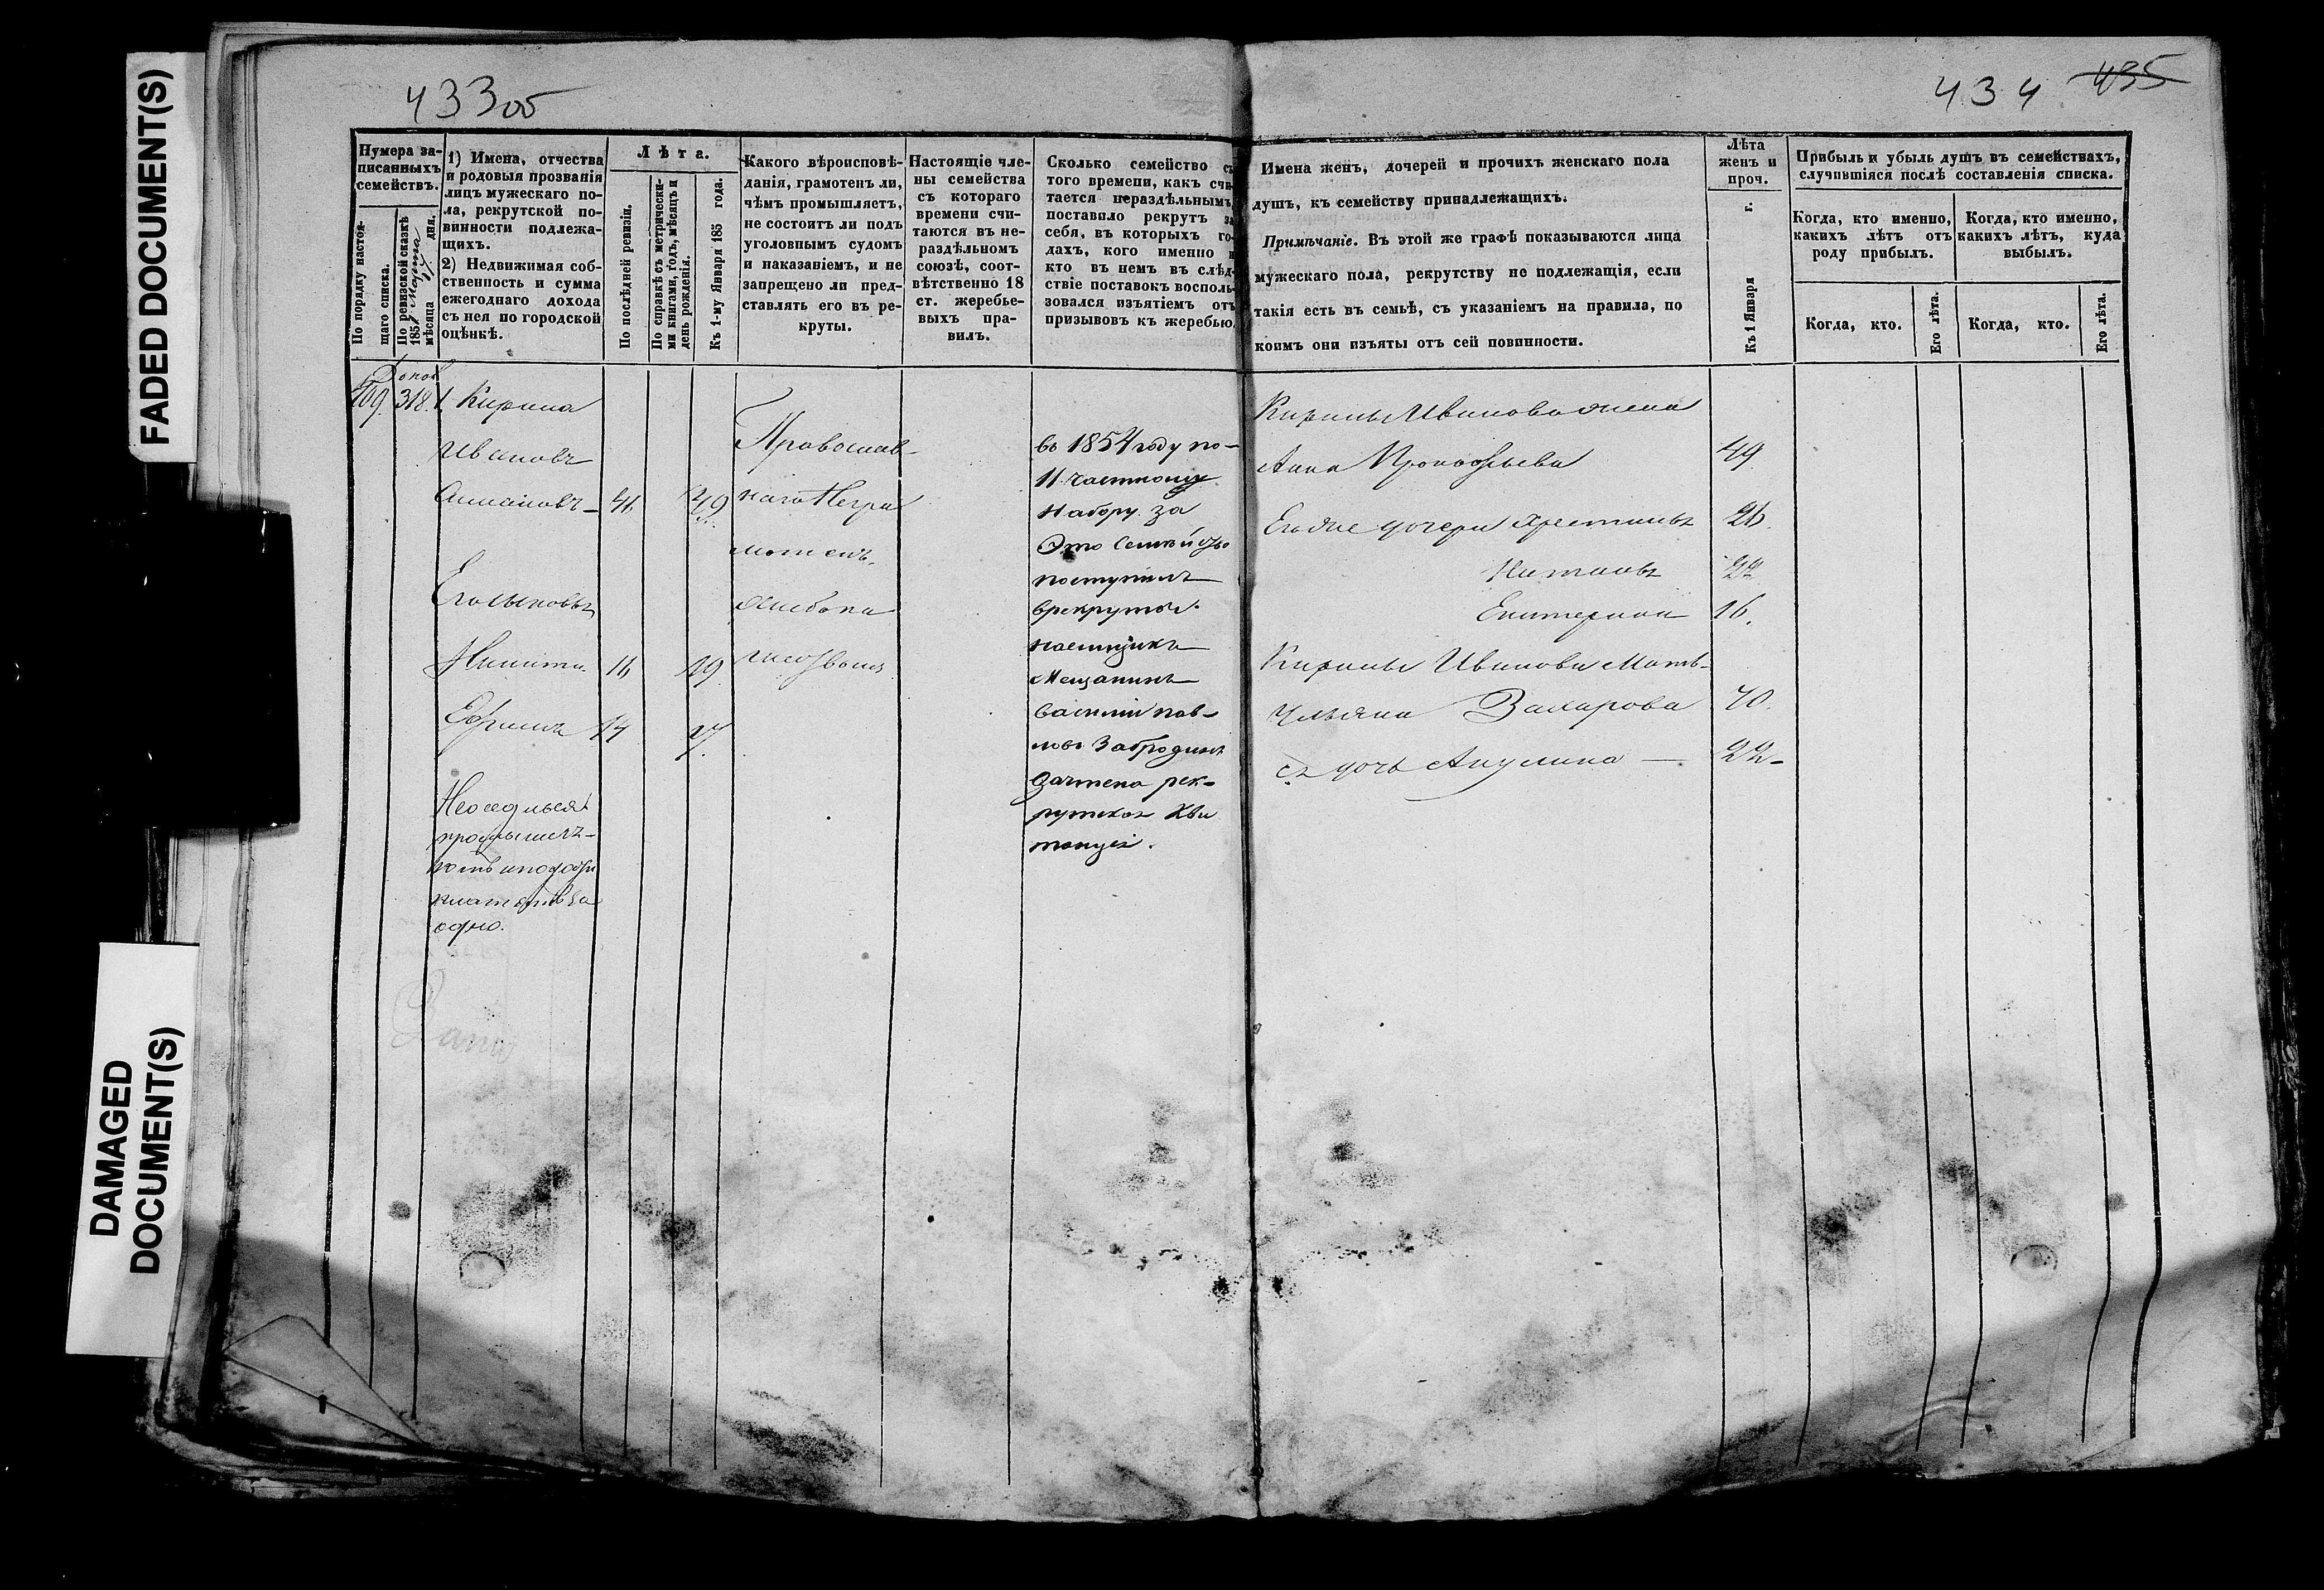 FADED DOCUMENT(S)
DAMAGED
DOCUMENT(S)
433об
434 435
Нумера за-
писанныхъ
семействъ.
По порядку настоя-
щаго списка.
По ревизской сказкѣ
185 марта
мѣсяца дня.
1) Имена, отчества
и родовыя прозванія
лицъ мужескаго по-
ла, рекрутской по-
винности подлежа-
щихъ.
2) Недвижимая соб-
ственность и сумма
ежегоднаго дохода
съ нея по городской
оцѣнкѣ.
Лѣта.
По послѣдней ревизіи.
По справкѣ съ метрически-
ми книгами, годъ, мѣсяцъ и
день рожденія.
Къ 1-му Января 185 года.
Какого вѣроисповѣ-
данія, грамотенъ ли,
чѣмъ промышляетъ,
не состоитъ ли подъ
уголовнымъ судомъ
и наказаніемъ, и не
запрещено ли пред-
ставлять его въ ре-
круты.
Настоящіе чле-
ны семейства
съ котораго
времени счи-
таются въ не-
раздѣльномъ
союзѣ, соот-
вѣтственно 18
ст. жеребье-
выхъ пра-
вилъ.
Сколько семейство съ
того времени, какъ счи-
тается нераздѣльнымъ,
поставило рекрутъ за
себя, въ которыхъ го-
дахъ, кого именно и
кто въ немъ въ слѣд-
ствіе поставокъ восполь-
зовался изъятіемъ отъ
призывовъ къ жеребью.
Имена женъ, дочерей и прочихъ женскаго пола
душъ, къ семейству принадлежащихъ.
Примѣчаніе. Въ этой же графѣ показываются лица
мужескаго пола, рекрутству не подлежащія, если
такія есть въ семьѣ, съ указаніемъ на правила, по
коимъ они изъяты отъ сей повинности.
Лѣта
женъ и
проч.
Къ 1 Января г.
Прибыль и убыль душъ въ семействахъ,
случившіяся послѣ составленія списка.
Когда, кто именно,
какихъ лѣтъ отъ
роду прибылъ.
Когда, кто именно,
какихъ лѣтъ, куда
выбылъ.
Когда, кто.
Его лѣта.
Когда, кто.
Его лѣта.
318. 1 Кирила
Ивановъ
41 49
Его сыновья
Никита 11 19
Ефимъ
одно.
Православ-
наго Негра
мотенъ.
въ 1854 году по
11 частному
набору за
Это Семейство
поступилъ
врекруты
наемщикъ
Мещанинъ
Василій Пав-
ловъ Забродинъ
Зачтена рек-
рутская Кви
танція.
Кирилы Иванова жена
Анна Прокофьева 49
Его же дочери Христинья 26.
Наталья 22
Екатерина 16.
Кирилы Иванова Мать
Ульяна Захарова 70.
Ея дочь Акулина — 22